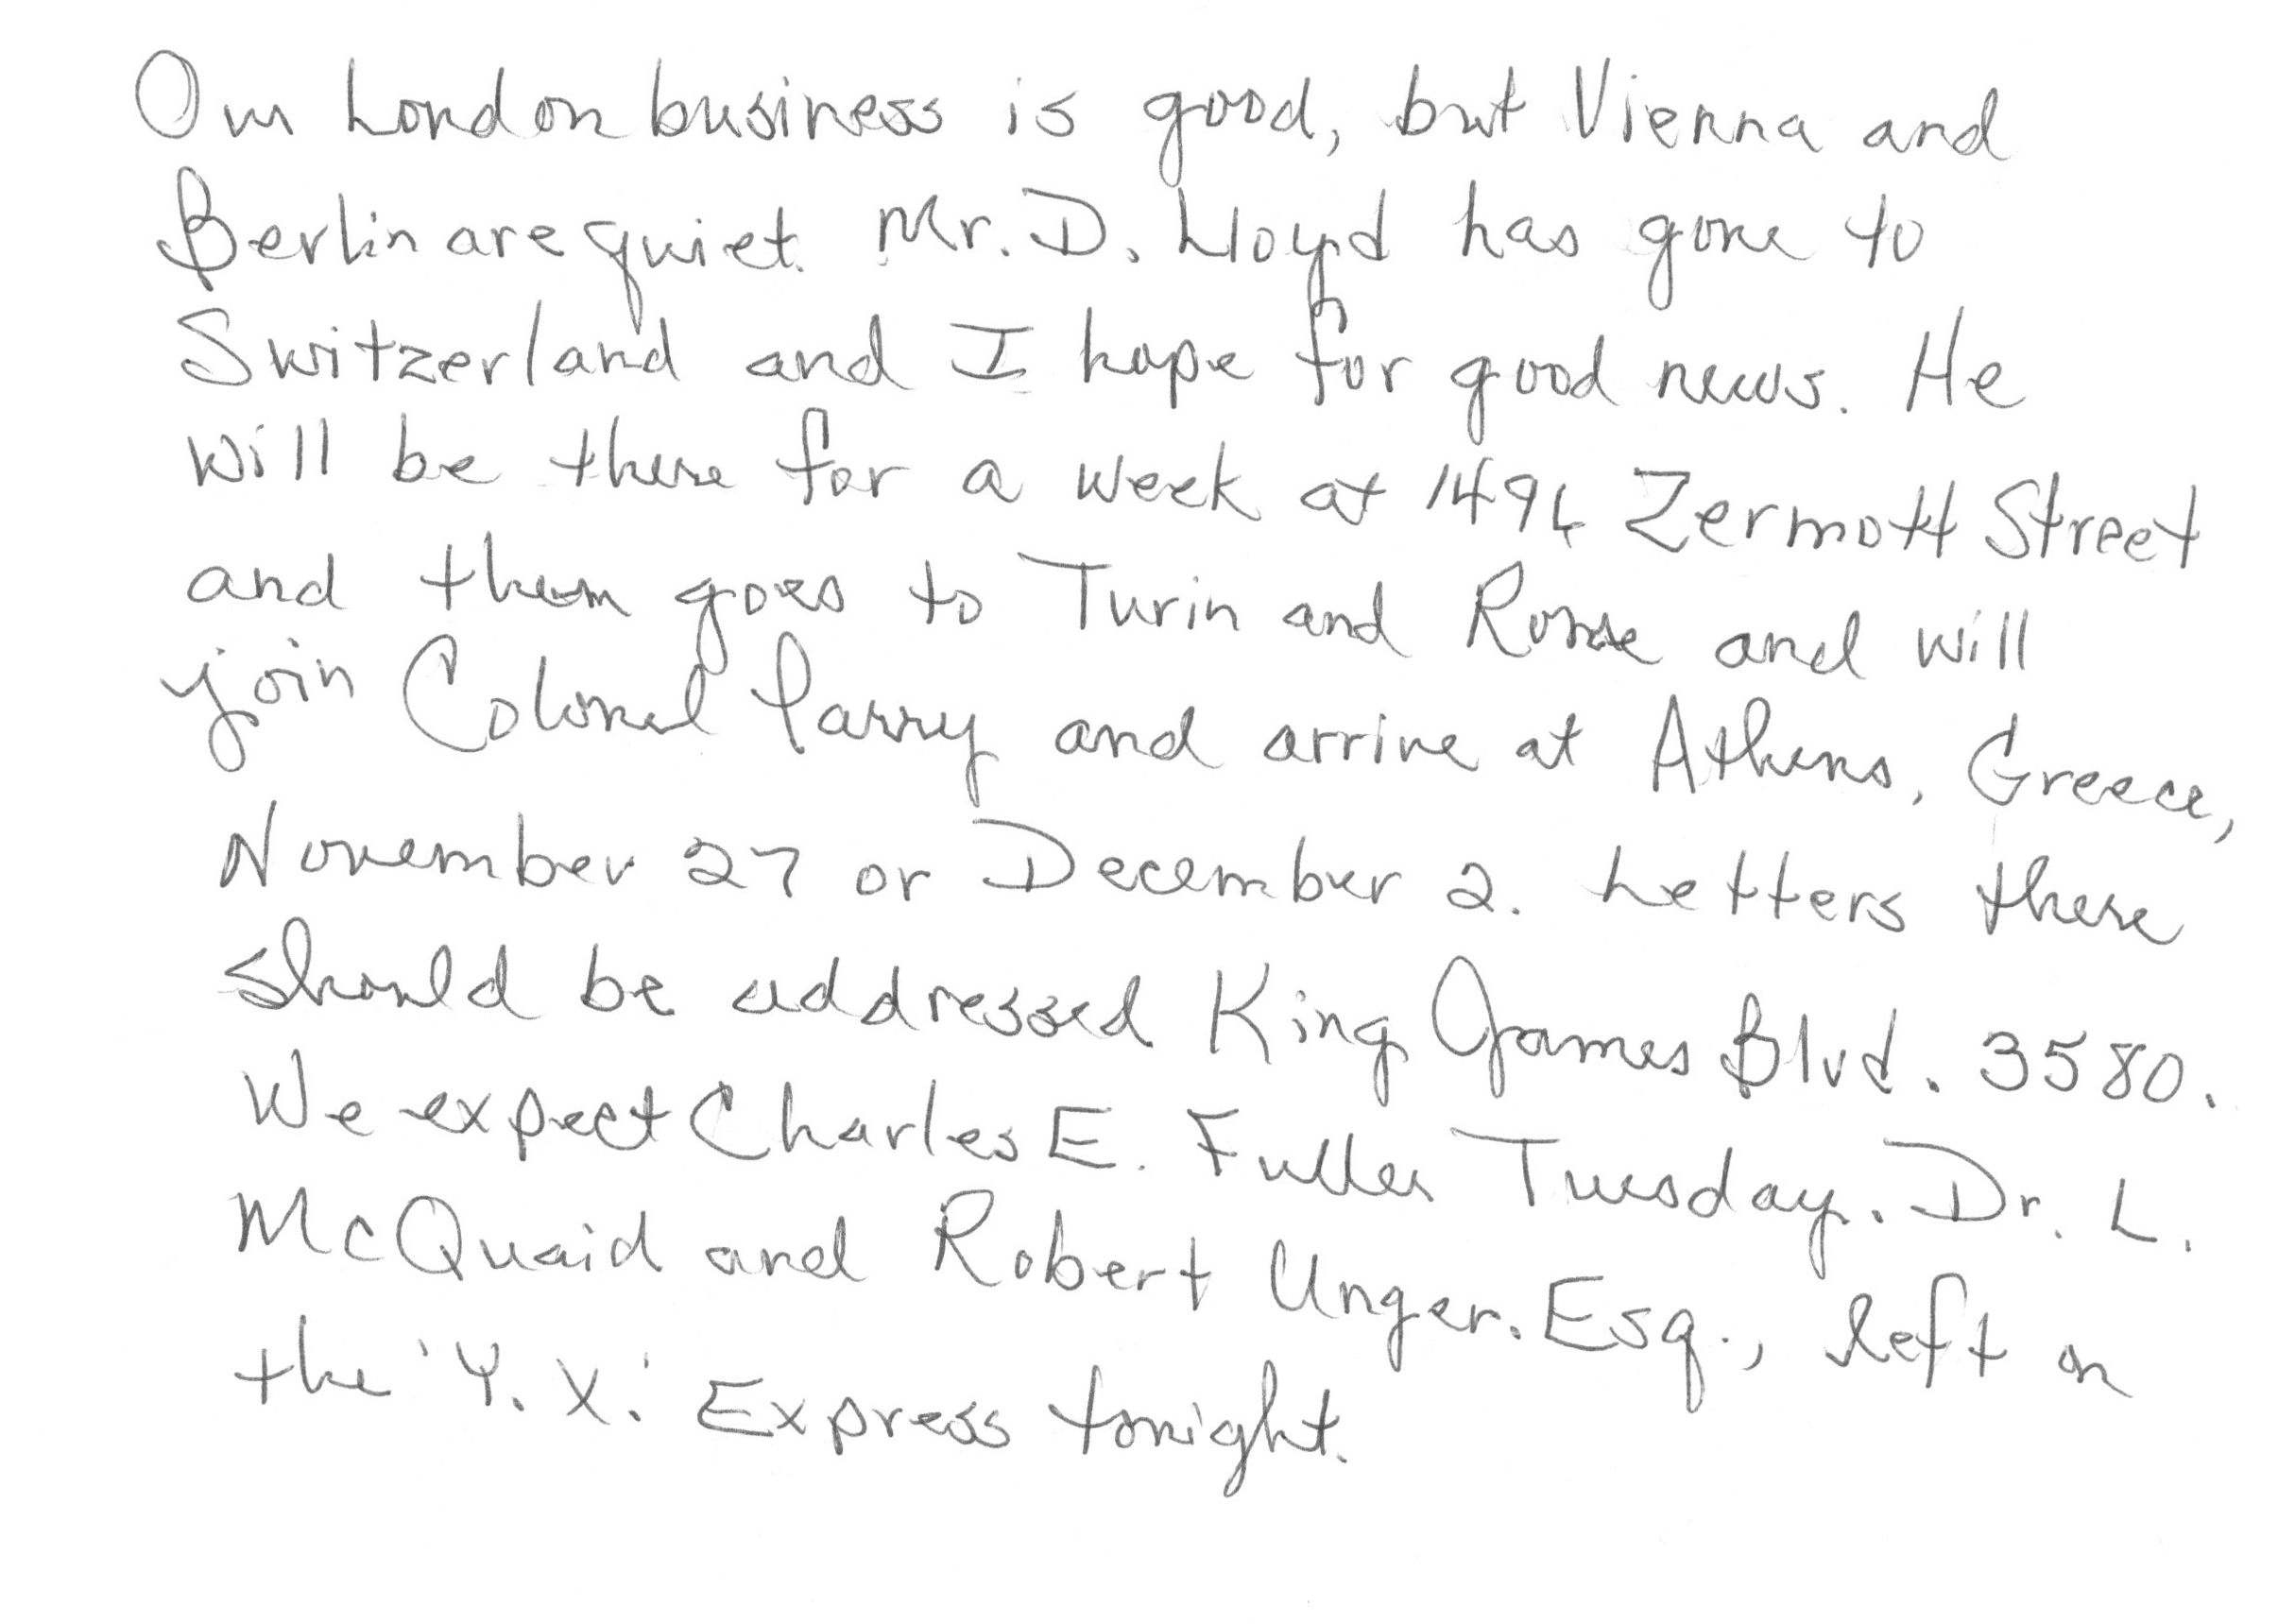 Our London business is good, but Vienna and
Berlin are quiet. Mr. D. Lloyd has gone to
Switzerland and I hope for good news. He
will be there for a week at 1496 Zermott Street
and then goes to Turin and Rome and will
join Colonel Parry and arrive at Athens, Greece,
November 27 or December 2. Letters there
should be addressed King James Blvd. 3580.
We expect Charles E. Fuller Tuesday. Dr. L.
McQuaid and Robert Unger. Esq., left on
the 'Y. X.' Express tonight.